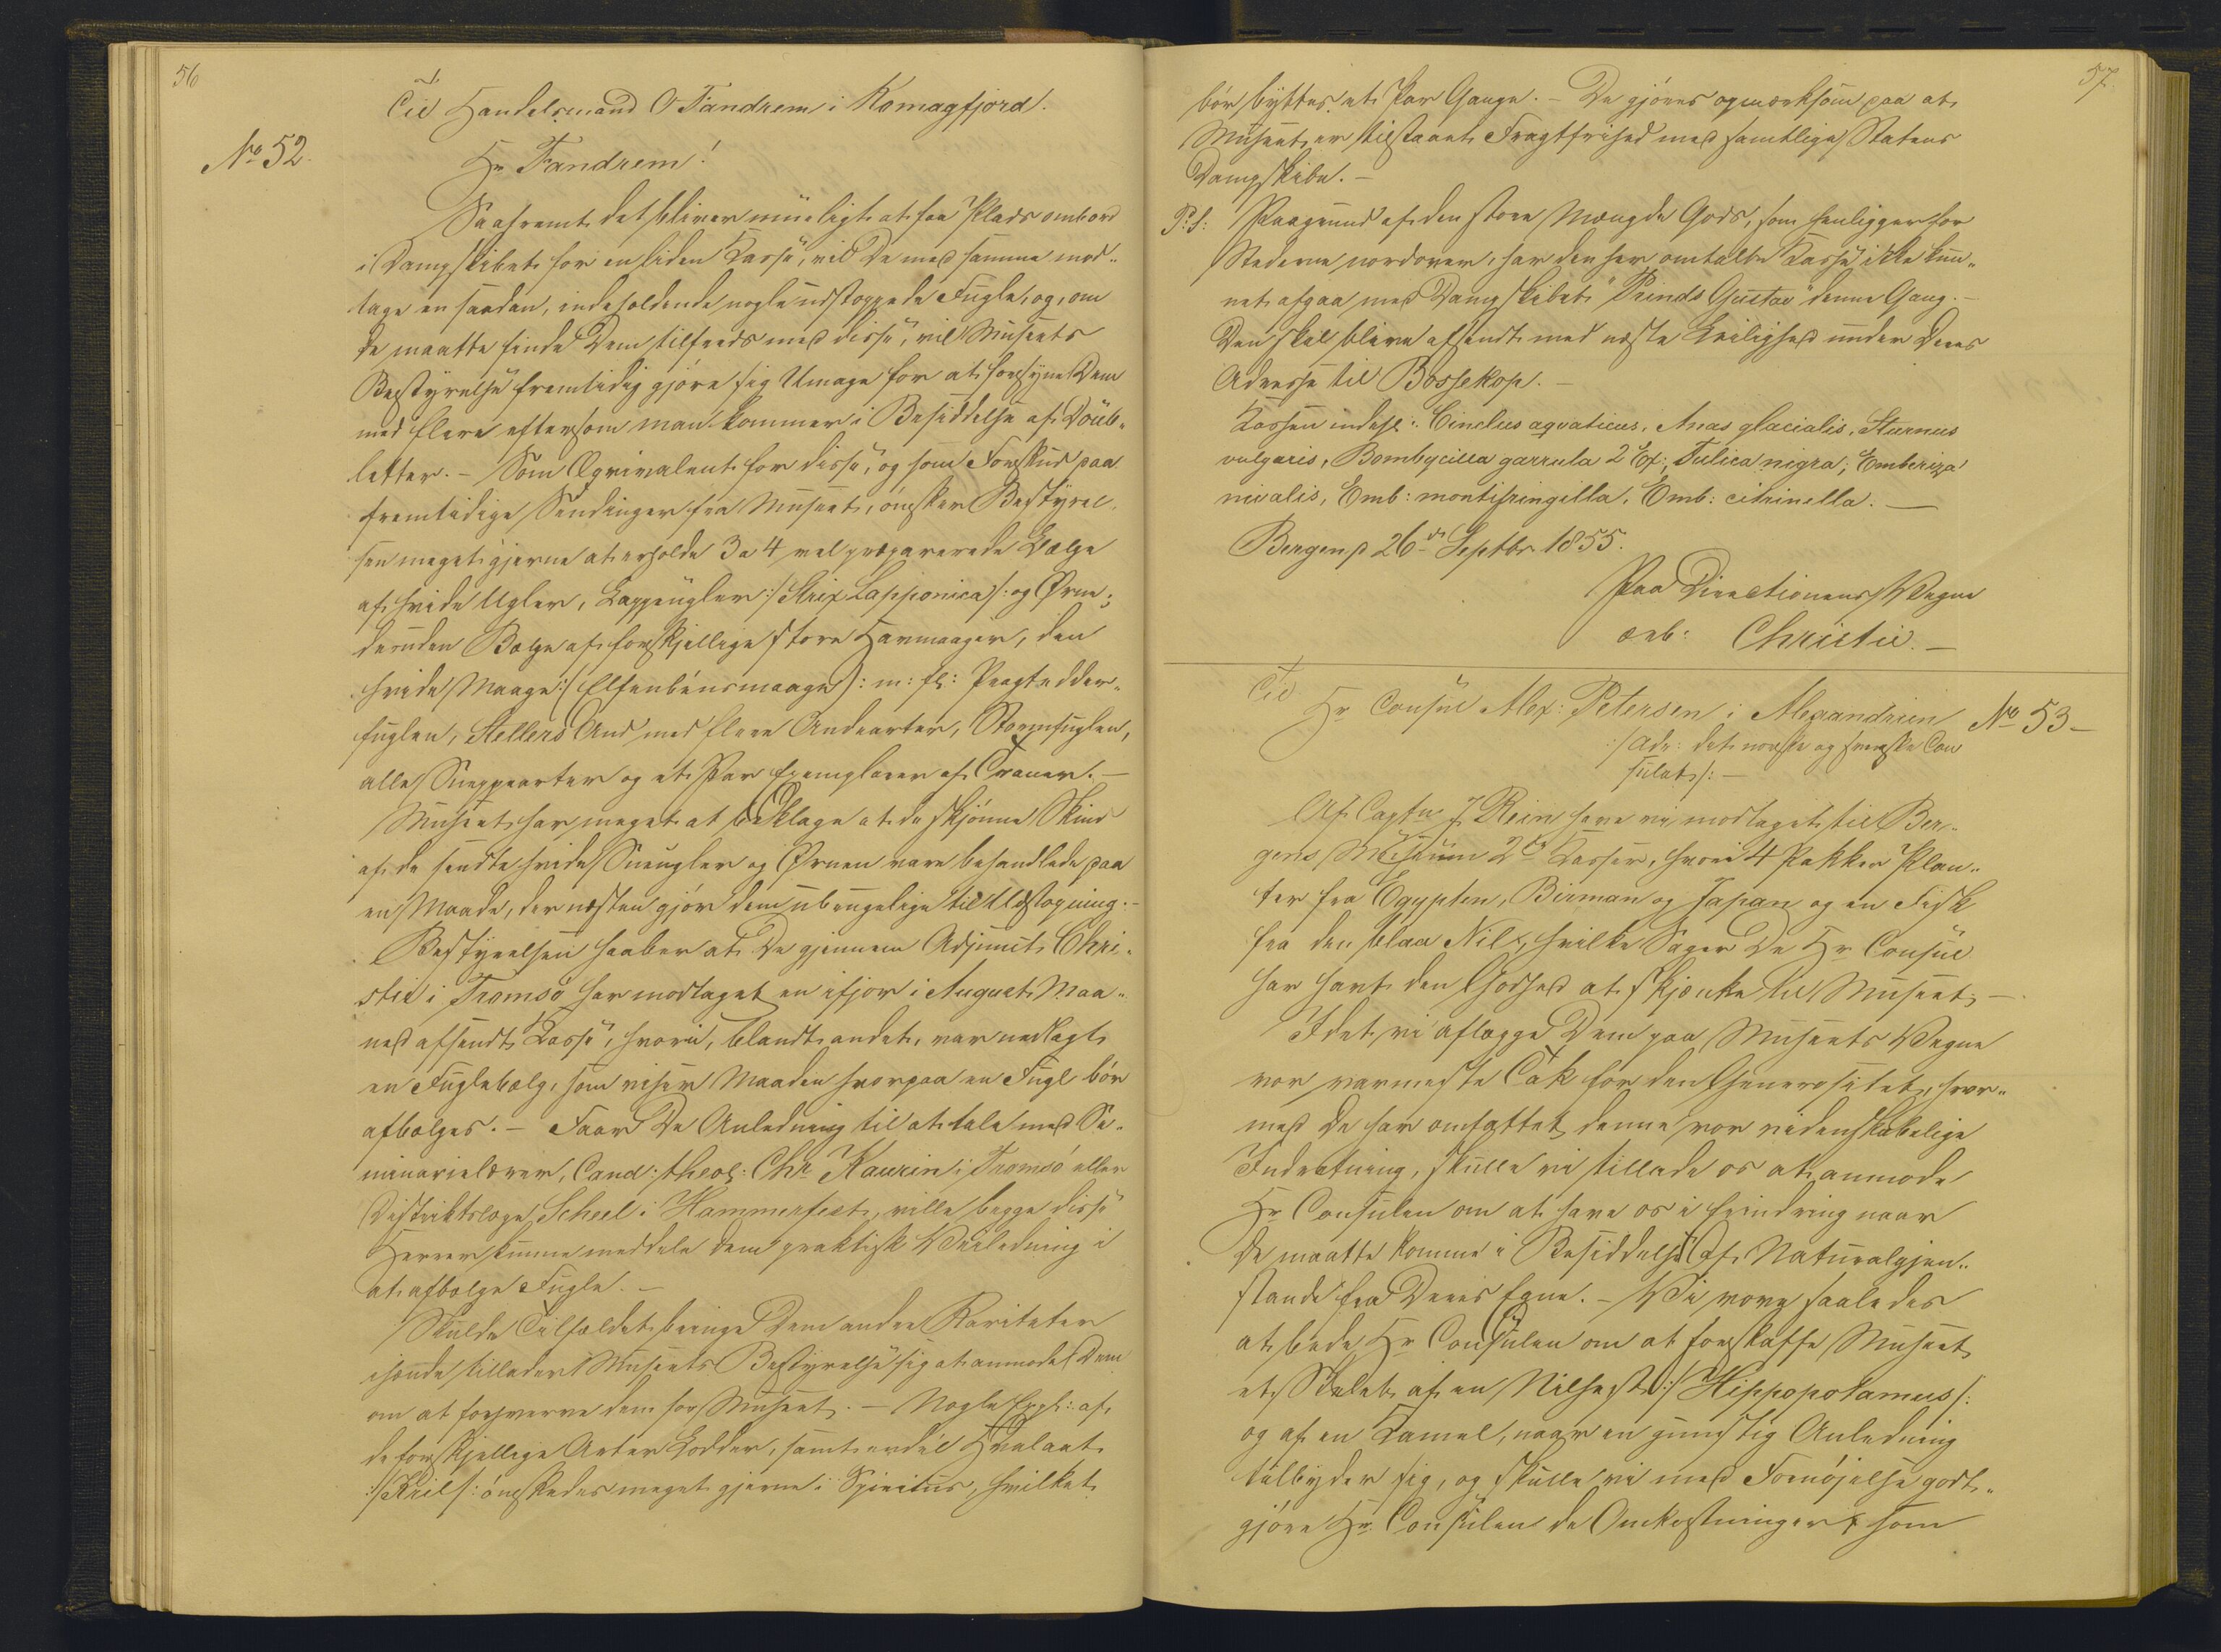 56
Til Handelsmand O Fandrem i Komagfjord.
No 52.
Hr Fandrem!
Saafremt det bliver mueligt at faa Plads ombord
i Dampskibet for en liden Kasse, vil De med samme mod-
tage en saadan, indeholdende nogle udstoppede Fugle, og, om
De maatte finde Dem tilfreds med disse, vil Museets
Bestyrelse fremtidig gjøre sig Umage for at forsyne Dem
med flere eftersom man kommer i Besiddelse af Doub-
letter. – Som Eqvivalent for disse, og som Forskud paa
fremtidige Sendinger fra Museet, ønsker Bestyrel-
sen meget gjerne at erholde 3 a 4 vel præparerede Bælge
af hvide Ugler, Lappugler :/Strix Lapponica/: og Ørne;
desuden Bælge af forskjellige store Havmaager, den
hvide Maage :/Elfenbensmaage/: m: fl: Pragtedder-
fuglen, Stellers And med flere Andearter, Stormfuglen,
alle Sneppearter og et Par Exemplarer af Traner. –
Museet har meget at beklage at de skjønne Skind
af de sendte hvide Sneugler og Ørnen vare behandlede paa
en Maade, der næsten gjør dem ubrugelige til Udstopning. –
Bestyrelsen haaber at De gjennem Adjunct Chri-
stie i Tromsø har modtaget en ifjor i August Maa-
ned afsendt Kasse, hvori, blandt andet, var nedlagt
en Fuglebælg, som viser Maaden hvorpaa en Fugl bør
afbælges. – Faar De Anledning til at tale med Se-
minarielærer, Cand: theol: Chr Kaurin i Tromsø eller
Distriktslæge Scheel i Hammerfest, ville begge disse
Herrer kunne meddele Dem praktisk Veiledning i
at afbælge Fugle. –
Skulde Tilfældet bringe Dem andre Rariteter
ihænde tillader Museets Bestyrelse sig at anmode Dem
om at forhverve dem for Museet. – Nogle Expl: af
de forskjellige Arter Lodder, samt endel Hvalaat
:/Kril/: ønskedes meget gjerne i Spiritus, hvilket
57.
bør byttes et Par Gange. – De gjøres opmærksom paa at
Museet er tilstaaet Fragtfrihed med samtlige Statens
Dampskibe. –
P:S: Paagrund af den store Mængde Gods, som henligger for
Stederne nordover, har den her omtalte Kasse ikke kun-
net afgaa med Dampskibet "Prinds Gustav" denne Gang. –
Den skal blive afsendt med næste Leilighed under Deres
Adresse til Bossekop. –
Kassen indeh: Cinclus aqvaticus, Anas glacialis, Sturnus
vulgaris, Bombycilla garrula 2 Ex:, Fulica nigra, Emberiza
nivalis, Emb: montifringilla, Emb: citrinella. –
Bergen d 26de Septbr 1855.
Paa Directionens Vegne
ærb: Christie. –
Til
Hr Consul Alex: Petersen i Alexandrien No 53 –
:/Adr: det norske og svenske Con
sulat/: –
Af Captn J Rein have vi modtaget til Ber-
gens Museum 2de Kasser, hvori 4 Pakker Plan-
ter fra Egypten, Birman og Japan og en Fisk
fra den blaa Nil, hvilke Sager De Hr Consul
har havt den Godhed at skjænke til Museet, –
Idet vi aflægge Dem paa Museets Vegne
vor varmeste Tak for den Generositet, hvor-
med De har omfattet denne vor videnskabelige
Indretning, skulle vi tillade os at anmode
Hr Consulen om at have os i Erindring naar
De maatte komme i Besiddelse af Naturalgjen-
stande fra Deres Egne. – Vi vove saaledes
at bede Hr Consulen om at forskaffe Museet
et Skelet af en Nilhest :/Hippopotamus/:
og af en Kamel, naar en gunstig Anledning
tilbyder sig, og skulle vi med Fornøjelse godt-
gjøre Hr Consulen de Omkostninger som